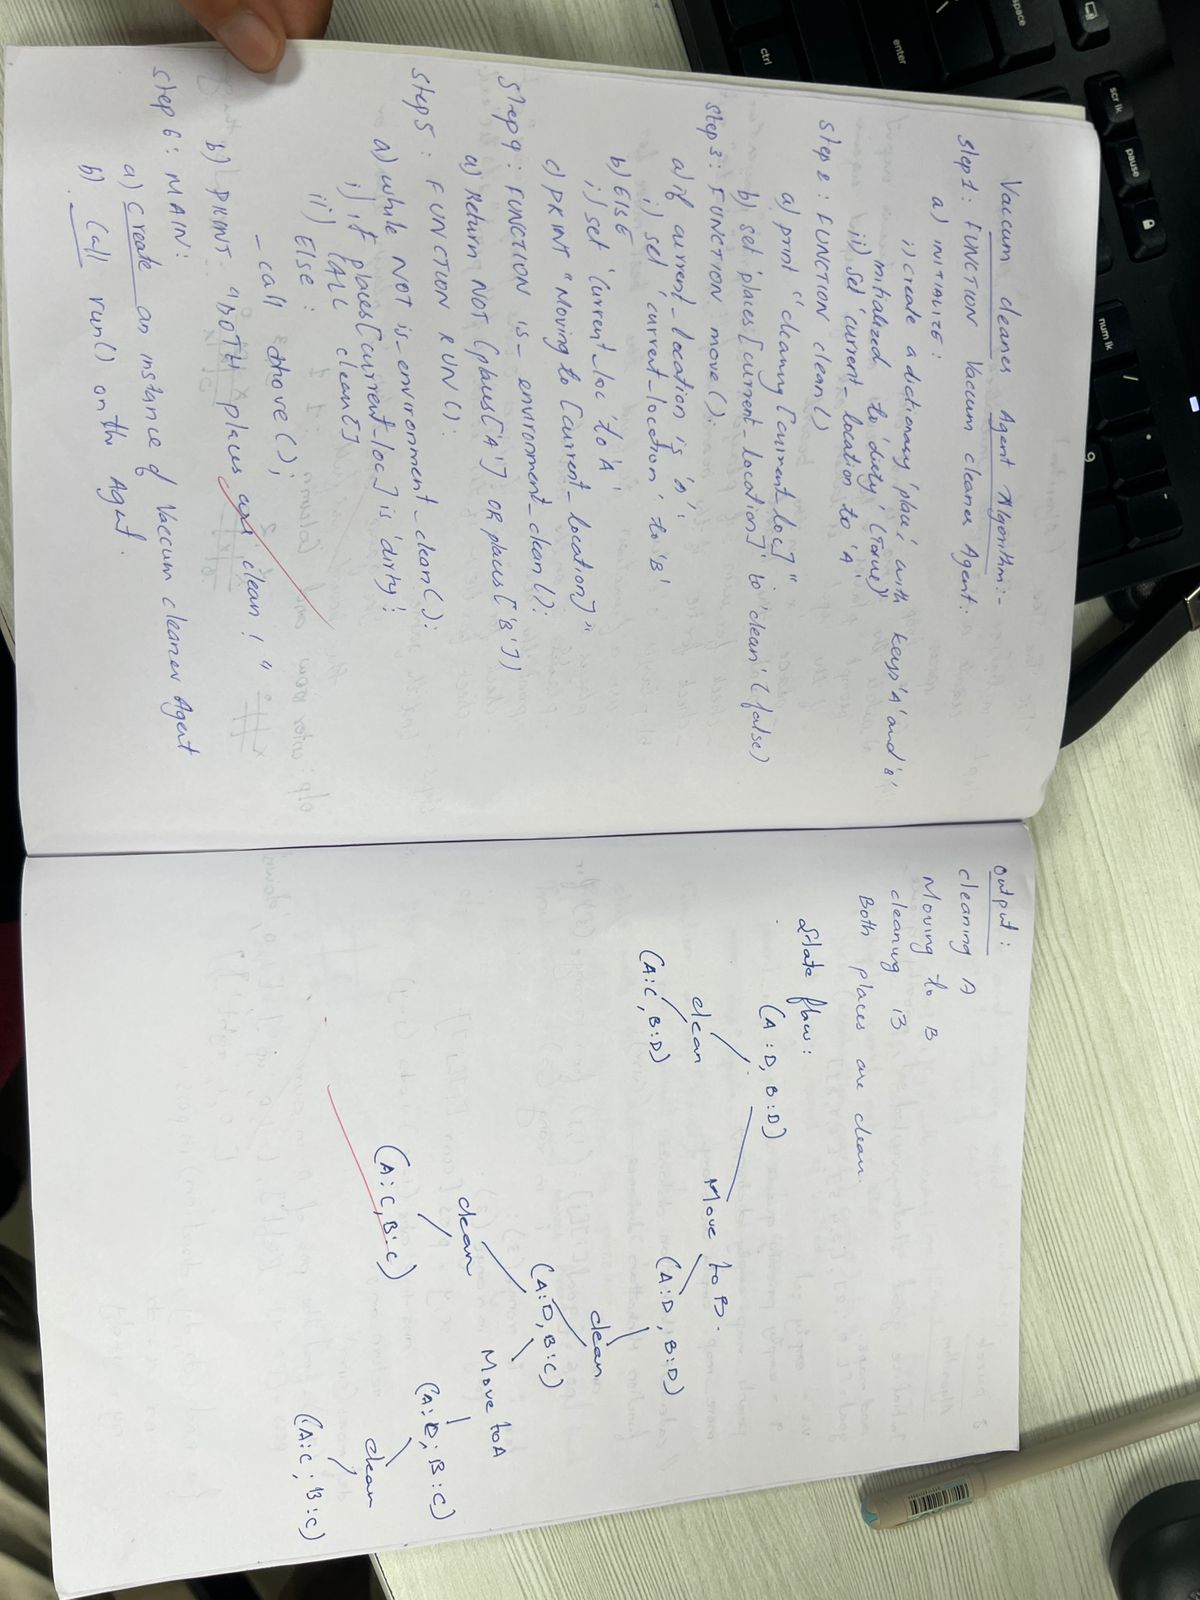 Vaccum cleaner Agent Algorithm:-
Step 1: FUNCTION Vaccum cleaner Agent:
a) INITIALIZE:
i) create a dictionary 'place', with keys 'A' and 'B'
initialized to 'dirty' (True)
ii) Set 'current_location to 'A'
Step 2: FUNCTION clean()
a) print "cleaning [current_loc]"
b) set places[current_location]' to 'clean' (false)
Step 3: FUNCTION move():
a) if current_location is 'A':
i) set 'current_location' to 'B'
b) ElSE
i) set 'current_loc 'to 'A'
c) PRINT "Moving to [current_location]"
Step 4: FUNCTION is_environment_clean():
a) Return NOT (places['A'] OR places['B'])
Step 5: FUNCTION RUN():
a) while NOT is_environment_clean():
i) if places[current_loc] is 'dirty':
CALL clean[]
ii) ELSE:
- call move();
b) PRINT "BOTH places are clean!"
Step 6: MAIN:
a) Create an instance of Vaccum cleaner Agent
b) Call run() on the Agent.
Output:
cleaning A
Moving to B
cleaning B
Both places are clean.
State flow:
(A:D, B:D)
clean
Move to B.
(A:C, B:D)
(A:D, B:D)
clean
(A:D, B:C)
clean
Move to A
(A:C, B:C)
(A:D; B:C)
clean
(A:C; B:C)
ctrl
enter
space
scr lk
pause
num lk
/
9